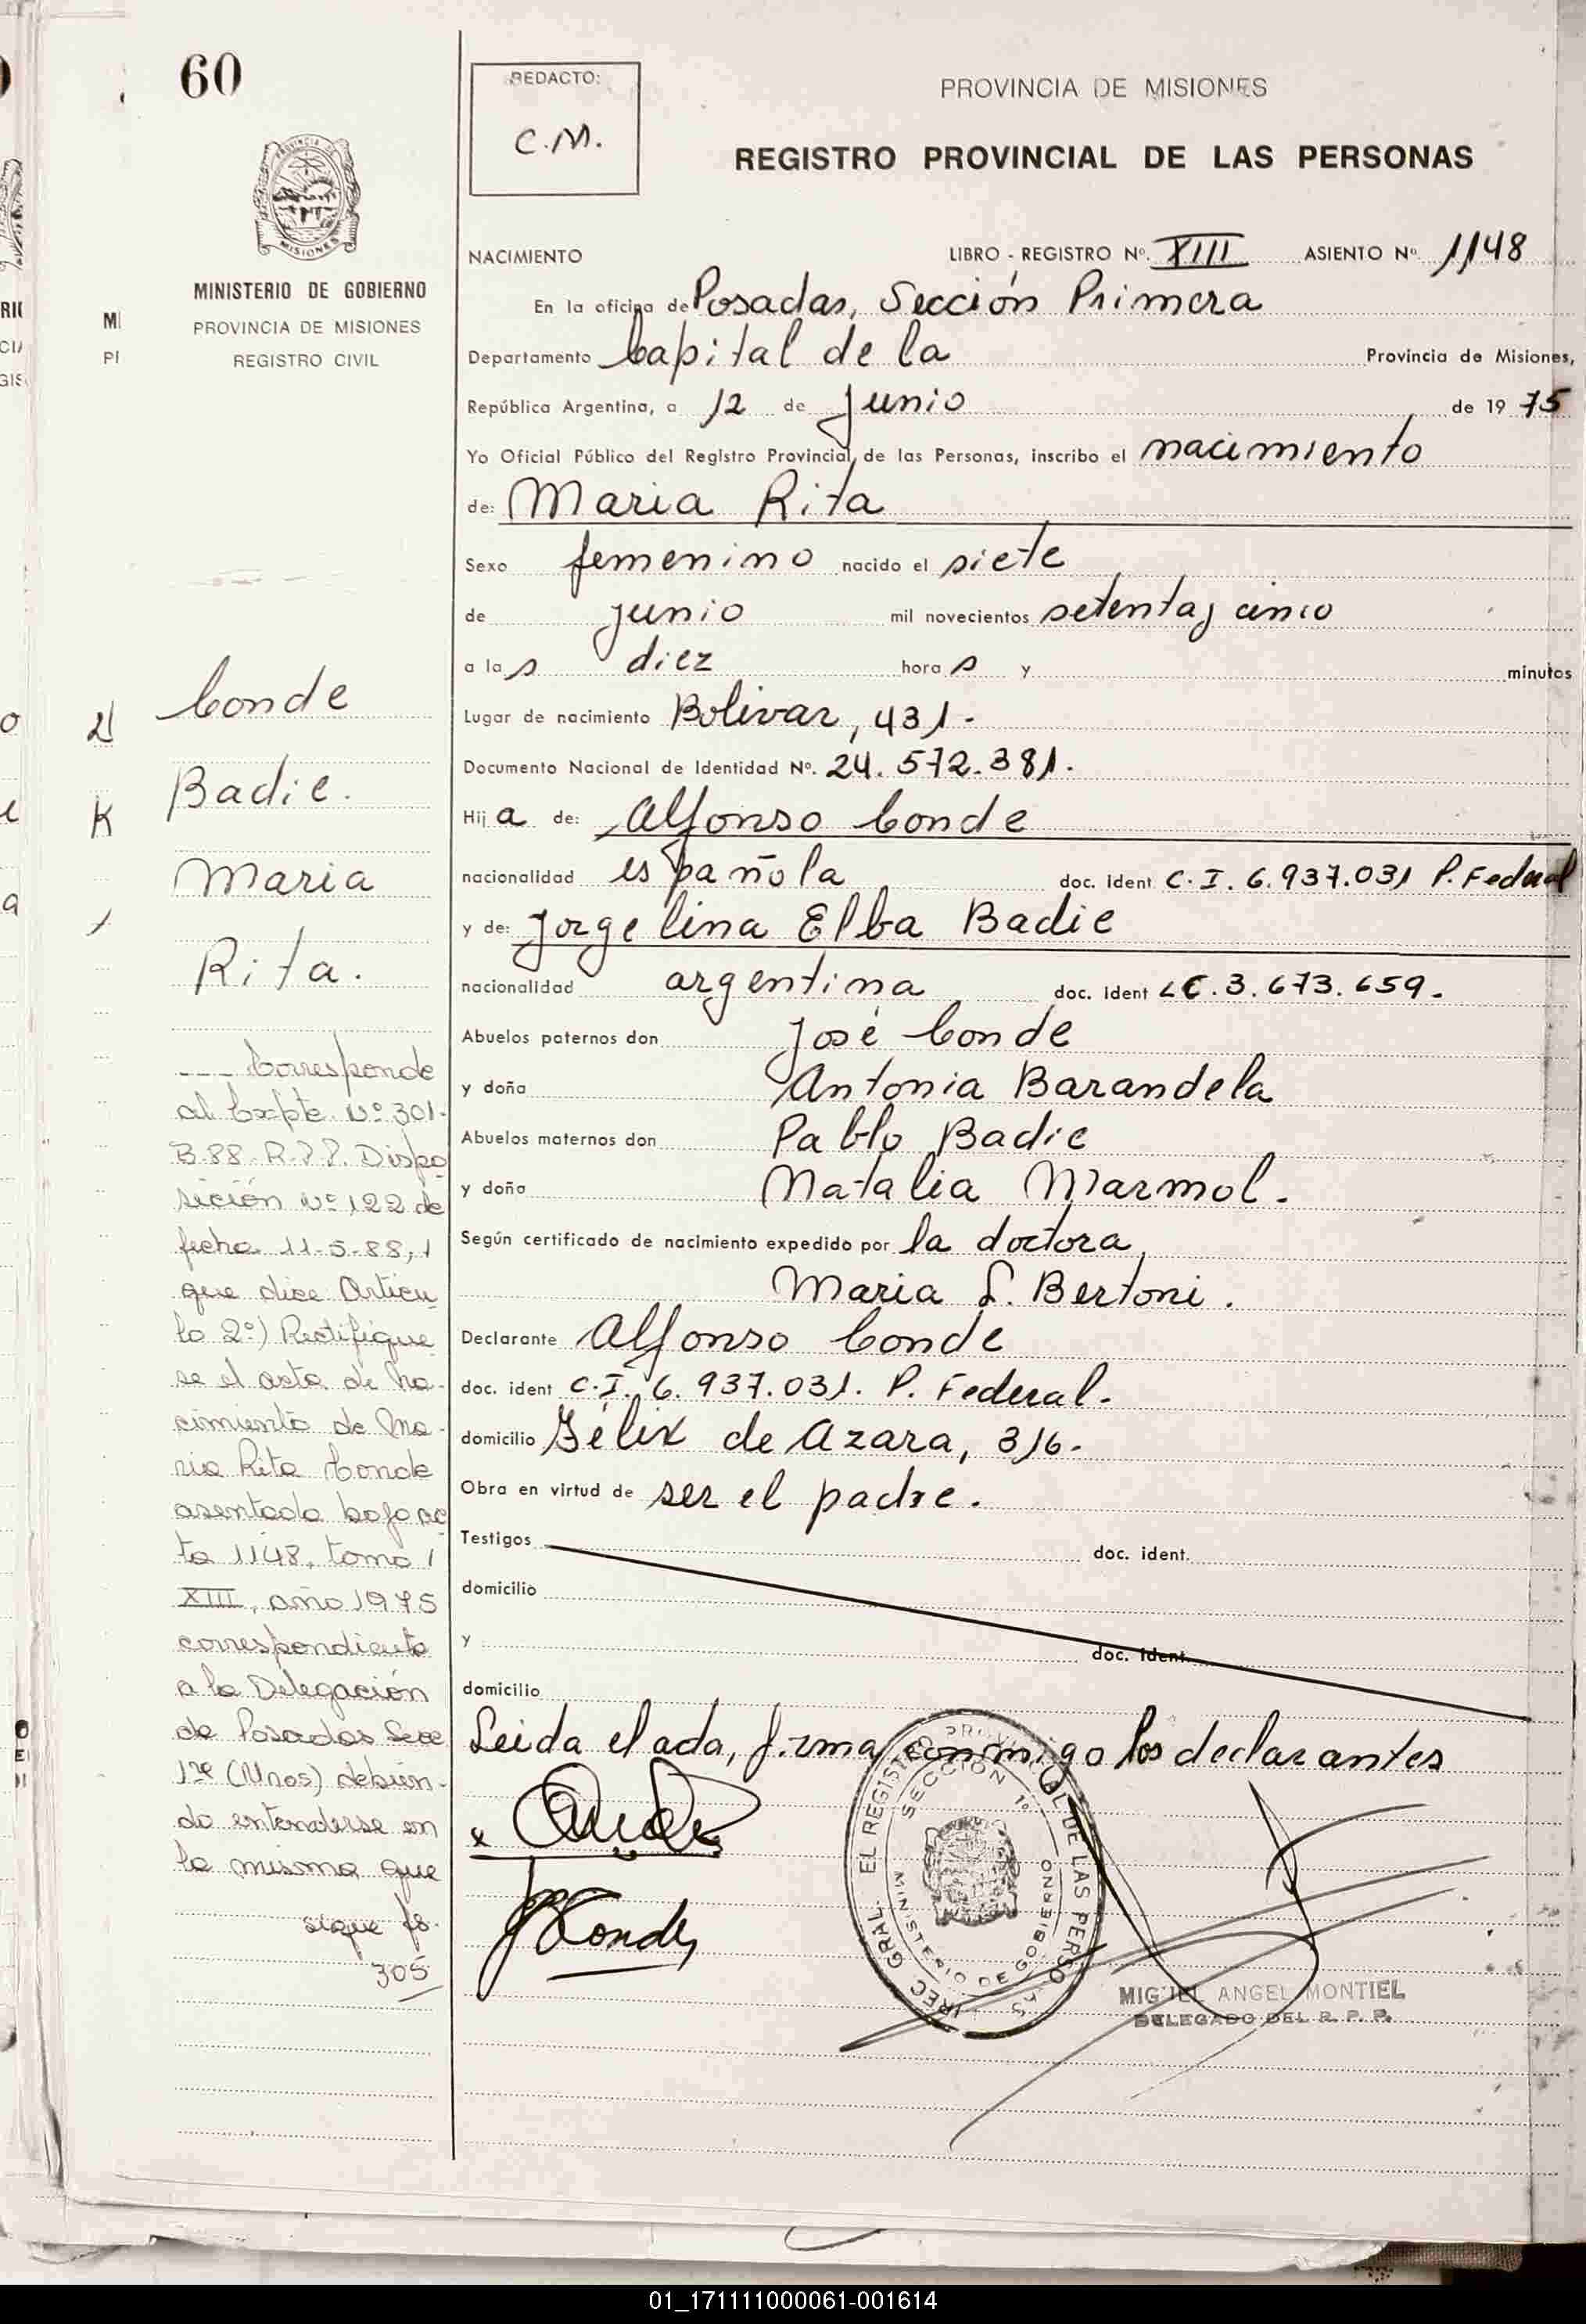 60
MINISTERIO DE GOBIERNO
PROVINCIA DE MISIONES
REGISTRO CIVIL
Conde
Badie.
Maria
Rita.
--- Corresponde
al Expte. Nº 301-
B-88-R.P.P. Dispo
sición Nº 122 de
fecha 11-5-88,
que dice Articu
lo 2º) Rectifique
se el acta de na-
cimiento de Ma-
ria Rita Conde
asentada bajo ac
ta 1148, tomo
XIII, año 1975
correspondiente
a la Delegación
de Posadas Secc
1ra (Unos) debien-
do entenderse en
la misma que
sigue fs.
305
REDACTO:
C.M.
PROVINCIA DE MISIONES
REGISTRO PROVINCIAL DE LAS PERSONAS
NACIMIENTO LIBRO - REGISTRO Nº. XIII ASIENTO Nº. 1148
En la oficina de Posadas, Sección Primera
Departamento Capital de la Provincia de Misiones,
República Argentina, a 12 de Junio de 1975
Yo Oficial Público del Registro Provincial de las Personas, inscribo el nacimiento
de: Maria Rita
Sexo femenino nacido el siete
de junio mil novecientos setenta y cinco
a las diez horas y minutos
Lugar de nacimiento Bolivar, 431.-
Documento Nacional de Identidad Nº. 24.572.381.
Hija de: Alfonso Conde
nacionalidad española doc. ident C.I. 6.937.031 P. Federal
y de: Jorgelina Elba Badie
nacionalidad argentina doc. ident LC.3.673.659.
Abuelos paternos don José Conde
y doña Antonia Barandela
Abuelos maternos don Pablo Badie
y doña Natalia Marmol.
Según certificado de nacimiento expedido por la doctora
Maria L. Bertoni.
Declarante Alfonso Conde
doc. ident C.I. 6.937.031. P. Federal.
domicilio Félix de Azara, 316.
Obra en virtud de ser el padre.
Testigos doc. ident.
domicilio
y doc. ident.
domicilio
Leida el acta, firman conmigo los declarantes
Conde
DIREC GRAL. EL REGISTRO PROVINCIAL DE LAS PERSONAS
SECCION 1º
MINISTERIO DE GOBIERNO
MIGUEL ANGEL MONTIEL
DELEGADO DEL R. P. P.
01_171111000061-001614